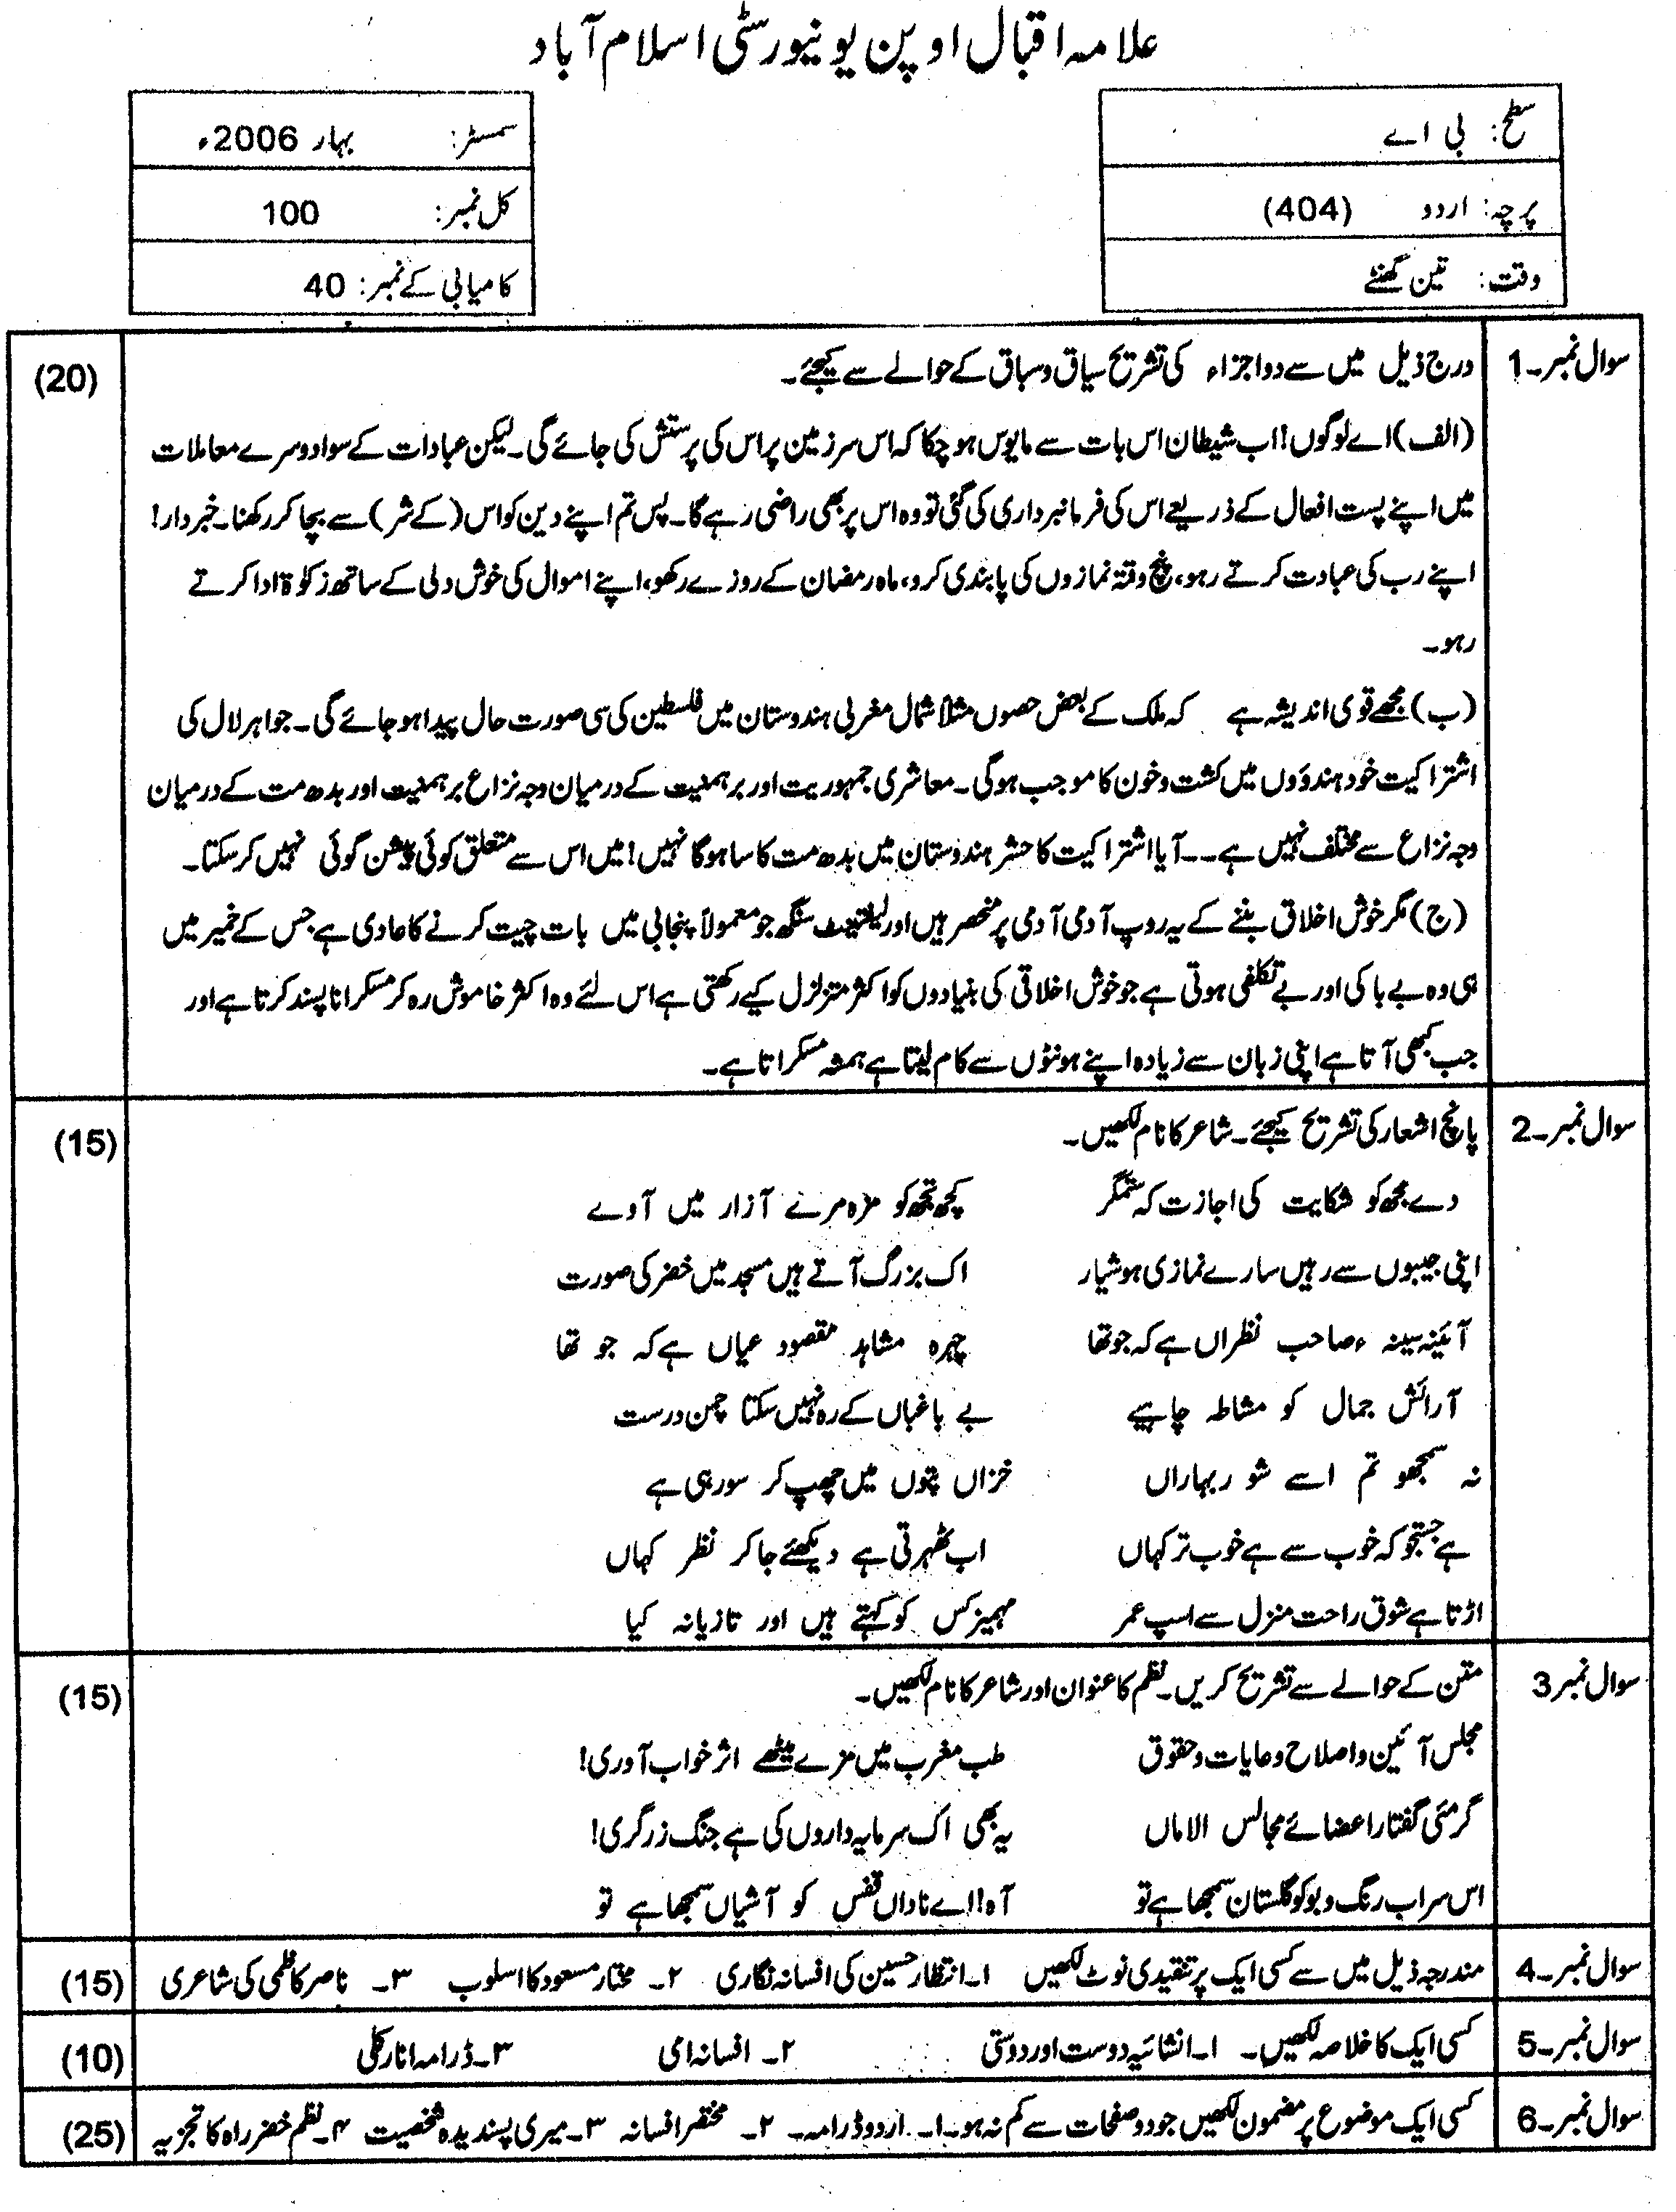 علامہ اقبال اوپن یونیورسٹی اسلام آباد
سطح: بی اے
سمسٹر: بہار 2006ء
پرچہ: اردو (404)
کل نمبر: 100
وقت: تین گھنٹے
کامیابی کے نمبر: 40
سوال نمبر۔1 درج ذیل میں سے دو اجزاء کی تشریح سیاق و سباق کے حوالے سے کیجئے۔ (20)
(الف) اے لوگوں! اب شیطان اس بات سے مایوس ہو چکا کہ اس سرزمین پر اس کی پرستش کی جائے گی۔ لیکن عبادات کے سوا دوسرے معاملات
میں اپنے پست افعال کے ذریعے اس کی فرمانبرداری کی گئی تو وہ اس پر بھی راضی رہے گا۔ پس تم اپنے دین کو اس (کے شر) سے بچا کر رکھنا۔ خبردار!
اپنے رب کی عبادت کرتے رہو، پنج وقتہ نمازوں کی پابندی کرو، ماہ رمضان کے روزے رکھو، اپنے اموال کی خوش دلی کے ساتھ زکوٰۃ ادا کرتے
رہو۔
(ب) مجھے قوی اندیشہ ہے کہ ملک کے بعض حصوں مثلاً شمال مغربی ہندوستان میں فلسطین کی سی صورت حال پیدا ہو جائے گی۔ جواہر لال کی
اشتراکیت خود ہندوؤں میں کشت و خون کا موجب ہوگی۔ معاشری جمہوریت اور برہمنیت کے درمیان وجہ نزاع برہمنیت اور بدھ مت کے درمیان
وجہ نزاع سے مختلف نہیں ہے۔۔۔ آیا اشتراکیت کا حشر ہندوستان میں بدھ مت کا سا ہوگا نہیں! میں اس سے متعلق کوئی پیشن گوئی نہیں کر سکتا۔
(ج) مگر خوش اخلاق بننے کے یہ روپ آدمی آدمی پر منحصر ہیں اور لیفٹیننٹ سنگھ جو معمولاً پنجابی میں بات چیت کرنے کا عادی ہے جس کے خمیر میں
ہی وہ بے باکی اور بے تکلفی ہوتی ہے جو خوش اخلاقی کی بنیادوں کو اکثر متزلزل کیے رکھتی ہے اس لئے وہ اکثر خاموش رہ کر مسکرانا پسند کرتا ہے اور
جب کبھی آتا ہے اپنی زبان سے زیادہ اپنے ہونٹوں سے کام لیتا ہے ہمشہ مسکراتا ہے۔
سوال نمبر۔2 پانچ اشعار کی تشریح کیجئے۔ شاعر کا نام لکھیں۔ (15)
دے مجھ کو شکایت کی اجازت کہ ستمگر کچھ تجھ کو مزہ مرے آزار میں آوے
اپنی جیبوں سے رہیں سارے نمازی ہوشیار اک بزرگ آتے ہیں مسجد میں خضر کی صورت
آئینہ سینہ ء صاحب نظراں ہے کہ جو تھا چہرہ مشاہد مقصود عیاں ہے کہ جو تھا
آرائش جمال کو مشاطہ چاہیے بے باغباں کے رہ نہیں سکتا چمن درست
نہ سمجھو تم اسے شور بہاراں خزاں پتوں میں چھپ کر سو رہی ہے
ہے جستجو کہ خوب سے ہے خوب تر کہاں اب ٹھہرتی ہے دیکھئے جا کر نظر کہاں
اڑتا ہے شوق راحت منزل سے اسپ عمر مہمیز کس کو کہتے ہیں اور تازیانہ کیا
سوال نمبر3 متن کے حوالے سے تشریح کریں۔ نظم کا عنوان اور شاعر کا نام لکھیں۔ (15)
مجلس آئین و اصلاح و عایات و حقوق طب مغرب میں مزے میٹھے اثر خواب آوری!
گرمئی گفتار اعضائے مجالس الاماں یہ بھی اک سرمایہ داروں کی ہے جنگ زرگری!
اس سراب رنگ و بو کو گلستان سمجھا ہے تو آہ! اے ناداں قفس کو آشیاں سمجھا ہے تو
سوال نمبر۔4 مندرجہ ذیل میں سے کسی ایک پر تنقیدی نوٹ لکھیں ۱۔ انتظار حسین کی افسانہ نگاری ۲۔ مختار مسعود کا اسلوب ۳۔ ناصر کاظمی کی شاعری (15)
سوال نمبر۔5 کسی ایک کا خلاصہ لکھیں۔ ۱۔ انشائیہ دوست اور دوستی ۲۔ افسانہ امی ۳۔ ڈرامہ انار کلی (10)
سوال نمبر۔6 کسی ایک موضوع پر مضمون لکھیں جو دو صفحات سے کم نہ ہو۔ ۱۔ اردو ڈرامہ۔ ۲۔ مختصر افسانہ ۳۔ میری پسندیدہ شخصیت ۴۔ نظم خضر راہ کا تجزیہ (25)